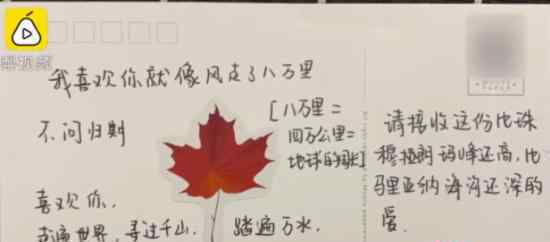 梨视频
我喜欢你就像风走了八万里
不问归期
[八万里=
四万公里=
地球的周长]
喜欢你,
走遍世界,寻过千山,踏遍万水.
请接收这份比珠
穆朗玛峰还高,比
马里亚纳海沟还深的
爱.